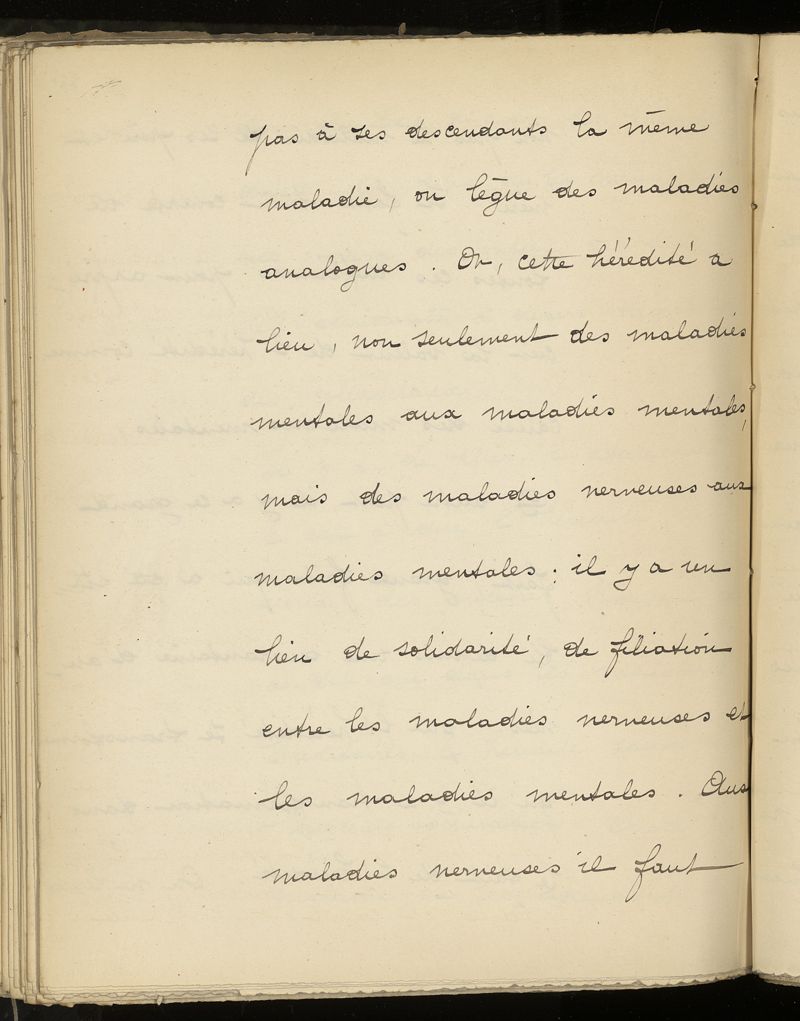 pas à ses descendants la même
maladie, on lègue des maladies
analogues. Or, cette hérédité a
lieu, non seulement des maladies
mentales aux maladies mentales,
mais des maladies nerveuses aux
maladies mentales ; il y a un
lien de solidarité, de filiation
entre les maladies nerveuses et
les maladies mentales. Aux
maladies nerveuses il faut